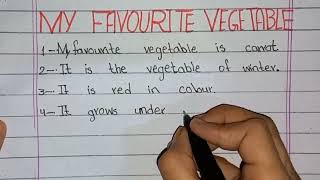 MY FAVOURITE VEGETABLE
1 - My favourite vegetable is carrot.
2 - It is the vegetable of winter.
3 - It is red in colour.
4 - It grows under